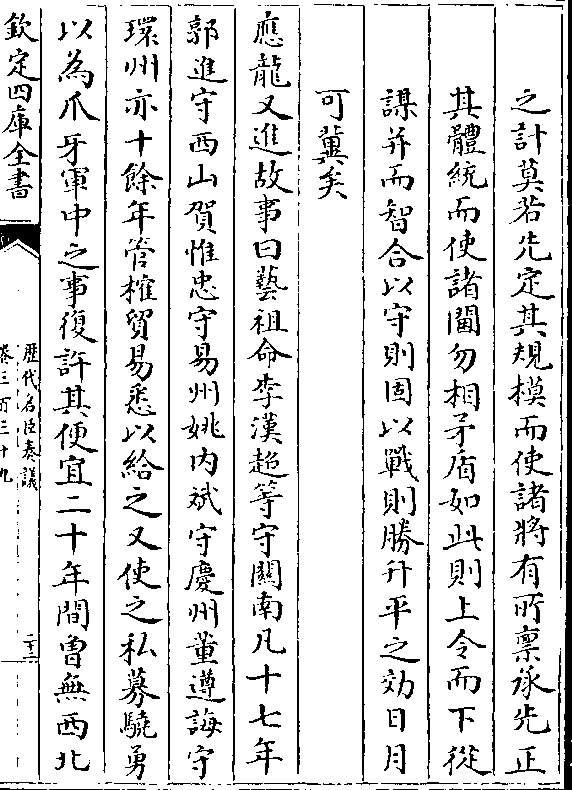 之計莫若先定其規模而使諸將有所禀承先正
其體統而使諸閫勿相矛盾如此則上令而下從
謀并而智合以守則固以戰則勝升平之効日月
可冀矣
應龍又進故事曰藝祖命李漢超等守關南凡十七年
郭進守西山賀惟忠守易州姚内斌守慶州董遵誨守
環州亦十餘年管榷貿易悉以給之又使之私募驍勇
以為爪牙軍中之事復許其便宜二十年間曾無西北
欽定四庫全書
歴代名臣奏議
卷三百三十九